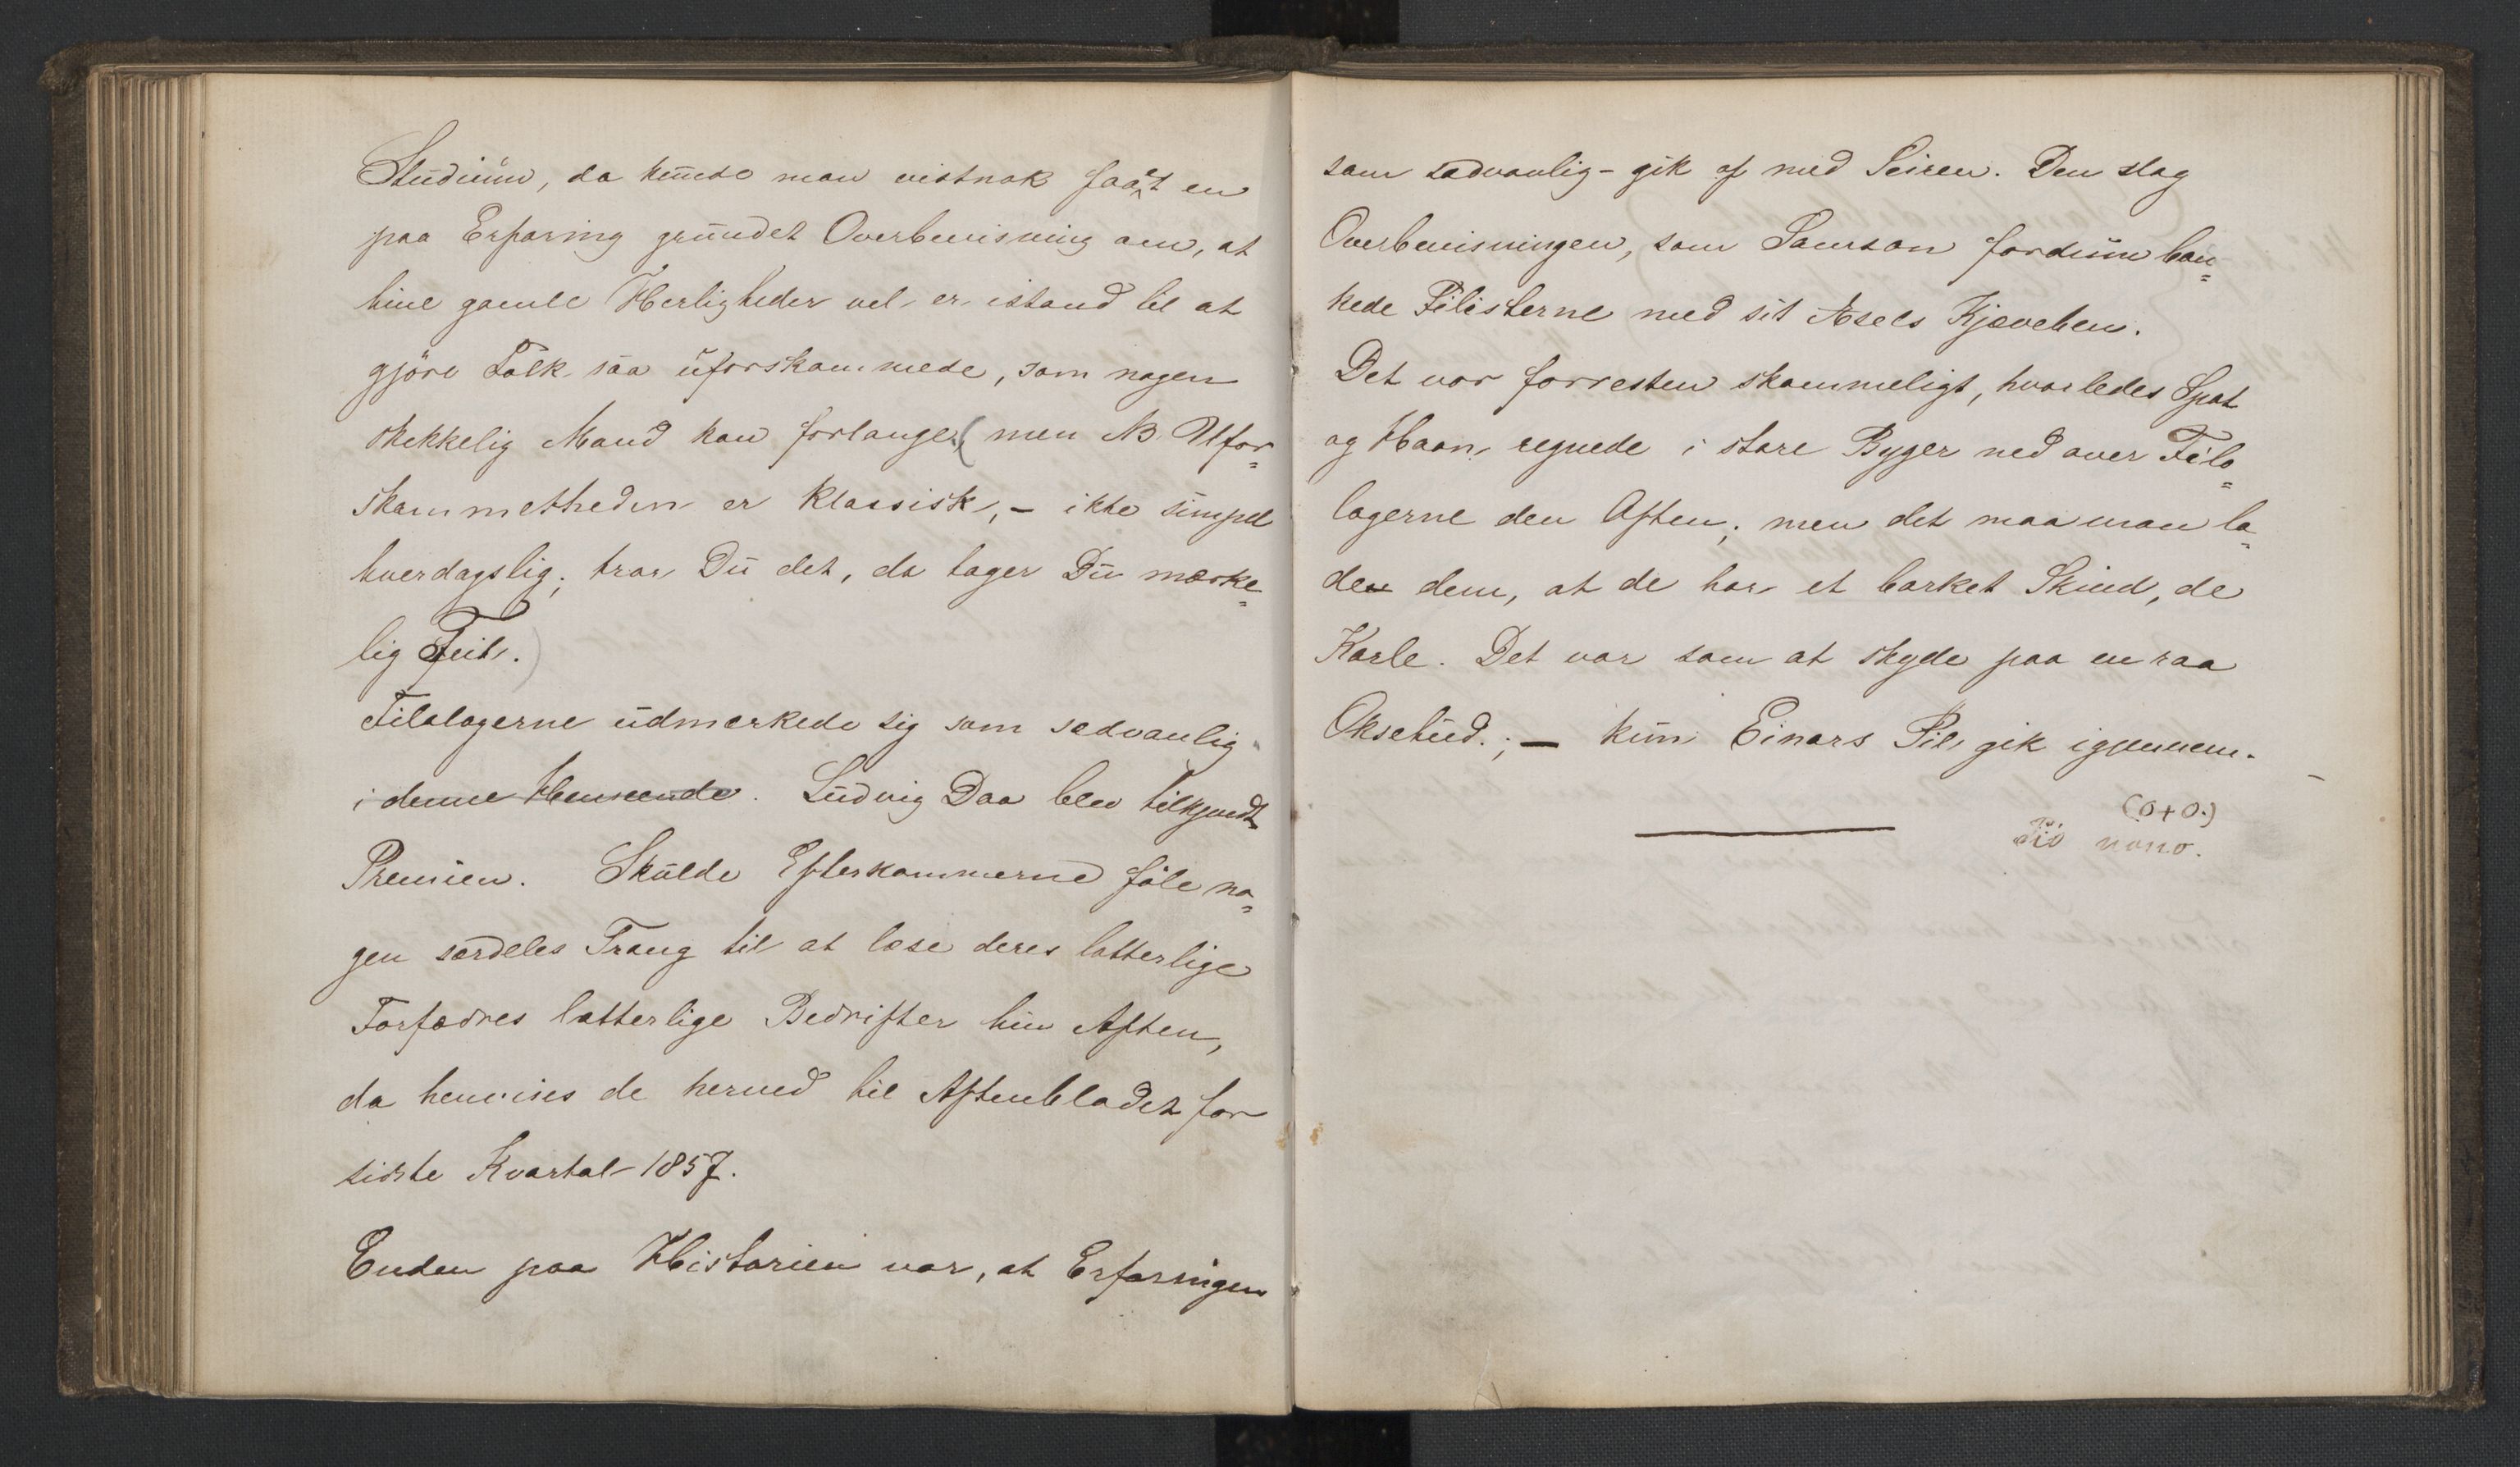 Studium, da kunde man vistnok faaet en
paa Erfaring grundet Overbevisning om, at
hine gamle Herligheder vel er istand til at
gjöre Folk saa uforskammede, som nogen
skikkelig Mand kan forlange, (men NB Ufor=
skammetheden er klassisk, - ikke simpel
hverdagslig; tror Du det, da tager Du mærke=
lig Feil.)
Filologerne udmærkede sig som sædvanlig
i denne Henseende. Ludvig Daa blev tilkjendt
Premien. Skulde Efterkommerne föle no=
gen særdeles Trang til at læse deres latterlige
Forfædres latterlige Bedrifter hin Aften,
da henvises de herved til Aftenbladet for
sidste Kvartal 1857.
Enden paa Historien var, at Erfaringen
som sædvanlig - gik af med Seiren. Den slog
Overbevisningen, som Samson fordum ban=
kede Filisterne med sit Æsels Kjæveben.
Det var forresten skammeligt, hvorledes Spot
og Haan regnede i store Byger ned over Filo=
logerne den Aften; men det maa man la=
de dem, at de har et barket Skind, de
Karle. Det var som at skyde paa en raa
Oksehud.; — kun Einars Pil gik igjennem.
(0+0.)
Tio nono.